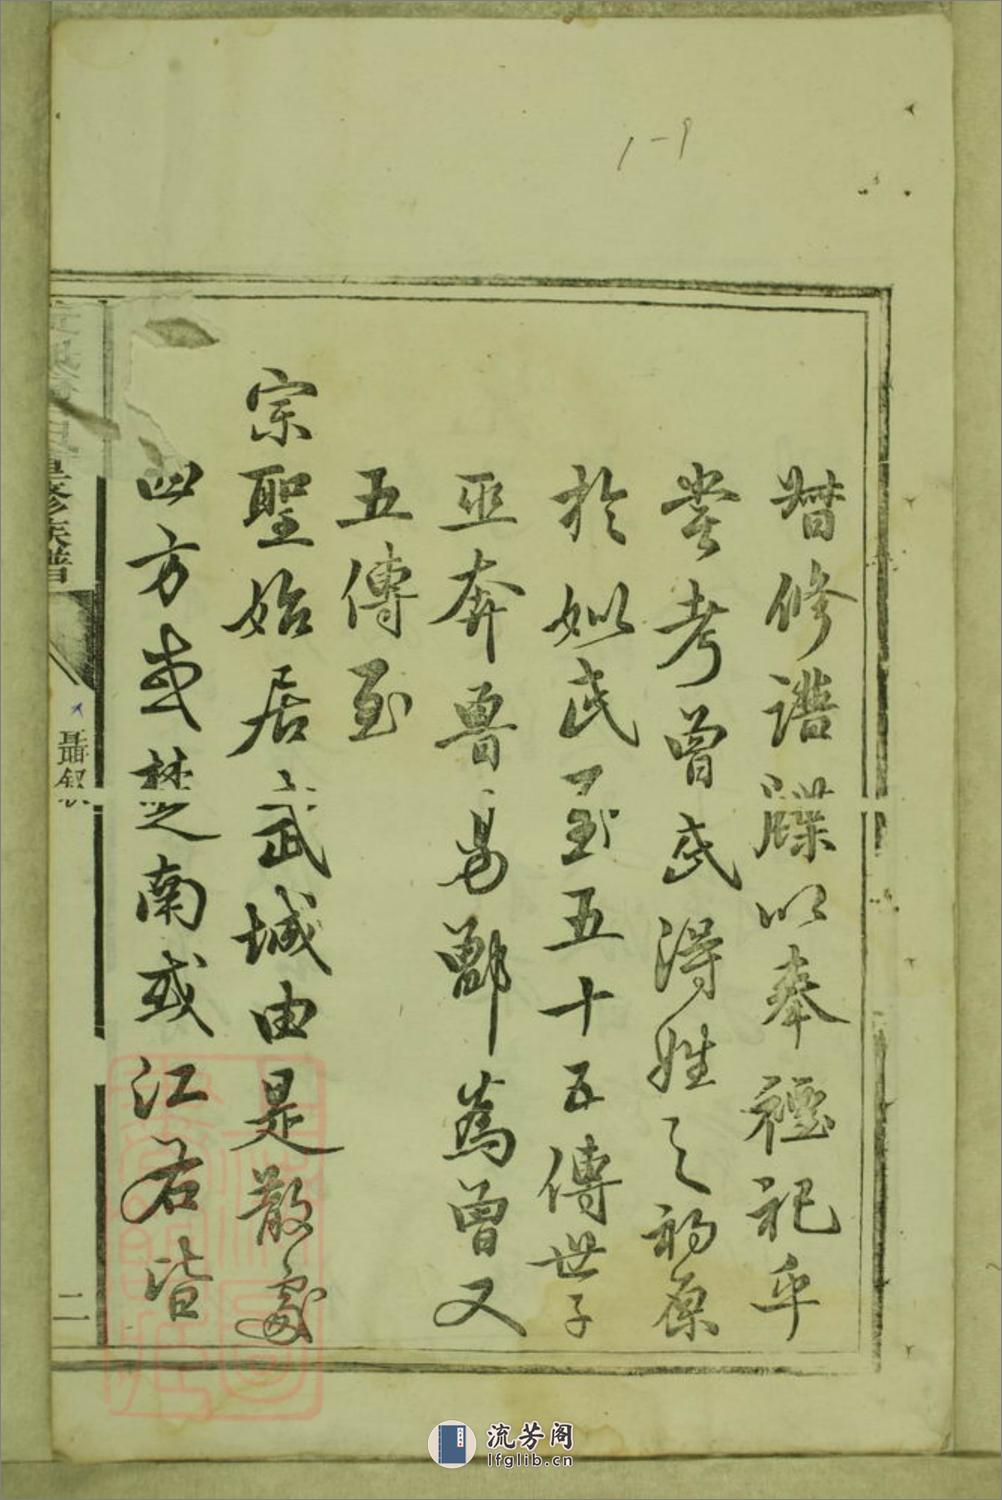 1-9
譖修譜牒以奉禋祀乎
嘗考曾氏得姓之初原
於姒氏至五十五傳世子
巫奔魯易鄫為曾又
五傳至
宗聖始居武城由是散處
四方或楚南或江右皆
修族譜
聶叙
二
流芳阁
lfglib.cn